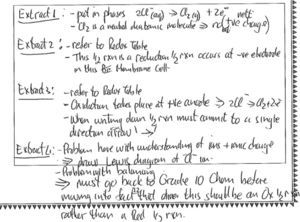 Extract 1: - put in phases 2Cl⁻(aq) ⇌ Cl₂(g) + 2e⁻
- Cl₂ is a neutral diatomic molecule ⇒ no (+ve charge)
Extract 2: - refer to Redox Table
- This ½ rxn is a reduction ½ rxn occurs at -ve electrode
in this Membrane Cell.
Extract 3: - refer to Redox Table
- Oxidation takes place at +ve anode ⇒ 2Cl⁻ → Cl₂ + 2e⁻
- When writing down ½ rxn must commit to a single
direction arrow! →
Extract 4: - Problem here with understanding of ions + ionic charge
⇒ draw Lewis diagram of Cl⁻ ion
- Problem with balancing
⇒ must go back to Grade 10 Chem before
moving into fact that this should be an Ox ½ rxn
rather than a Red ½ rxn.